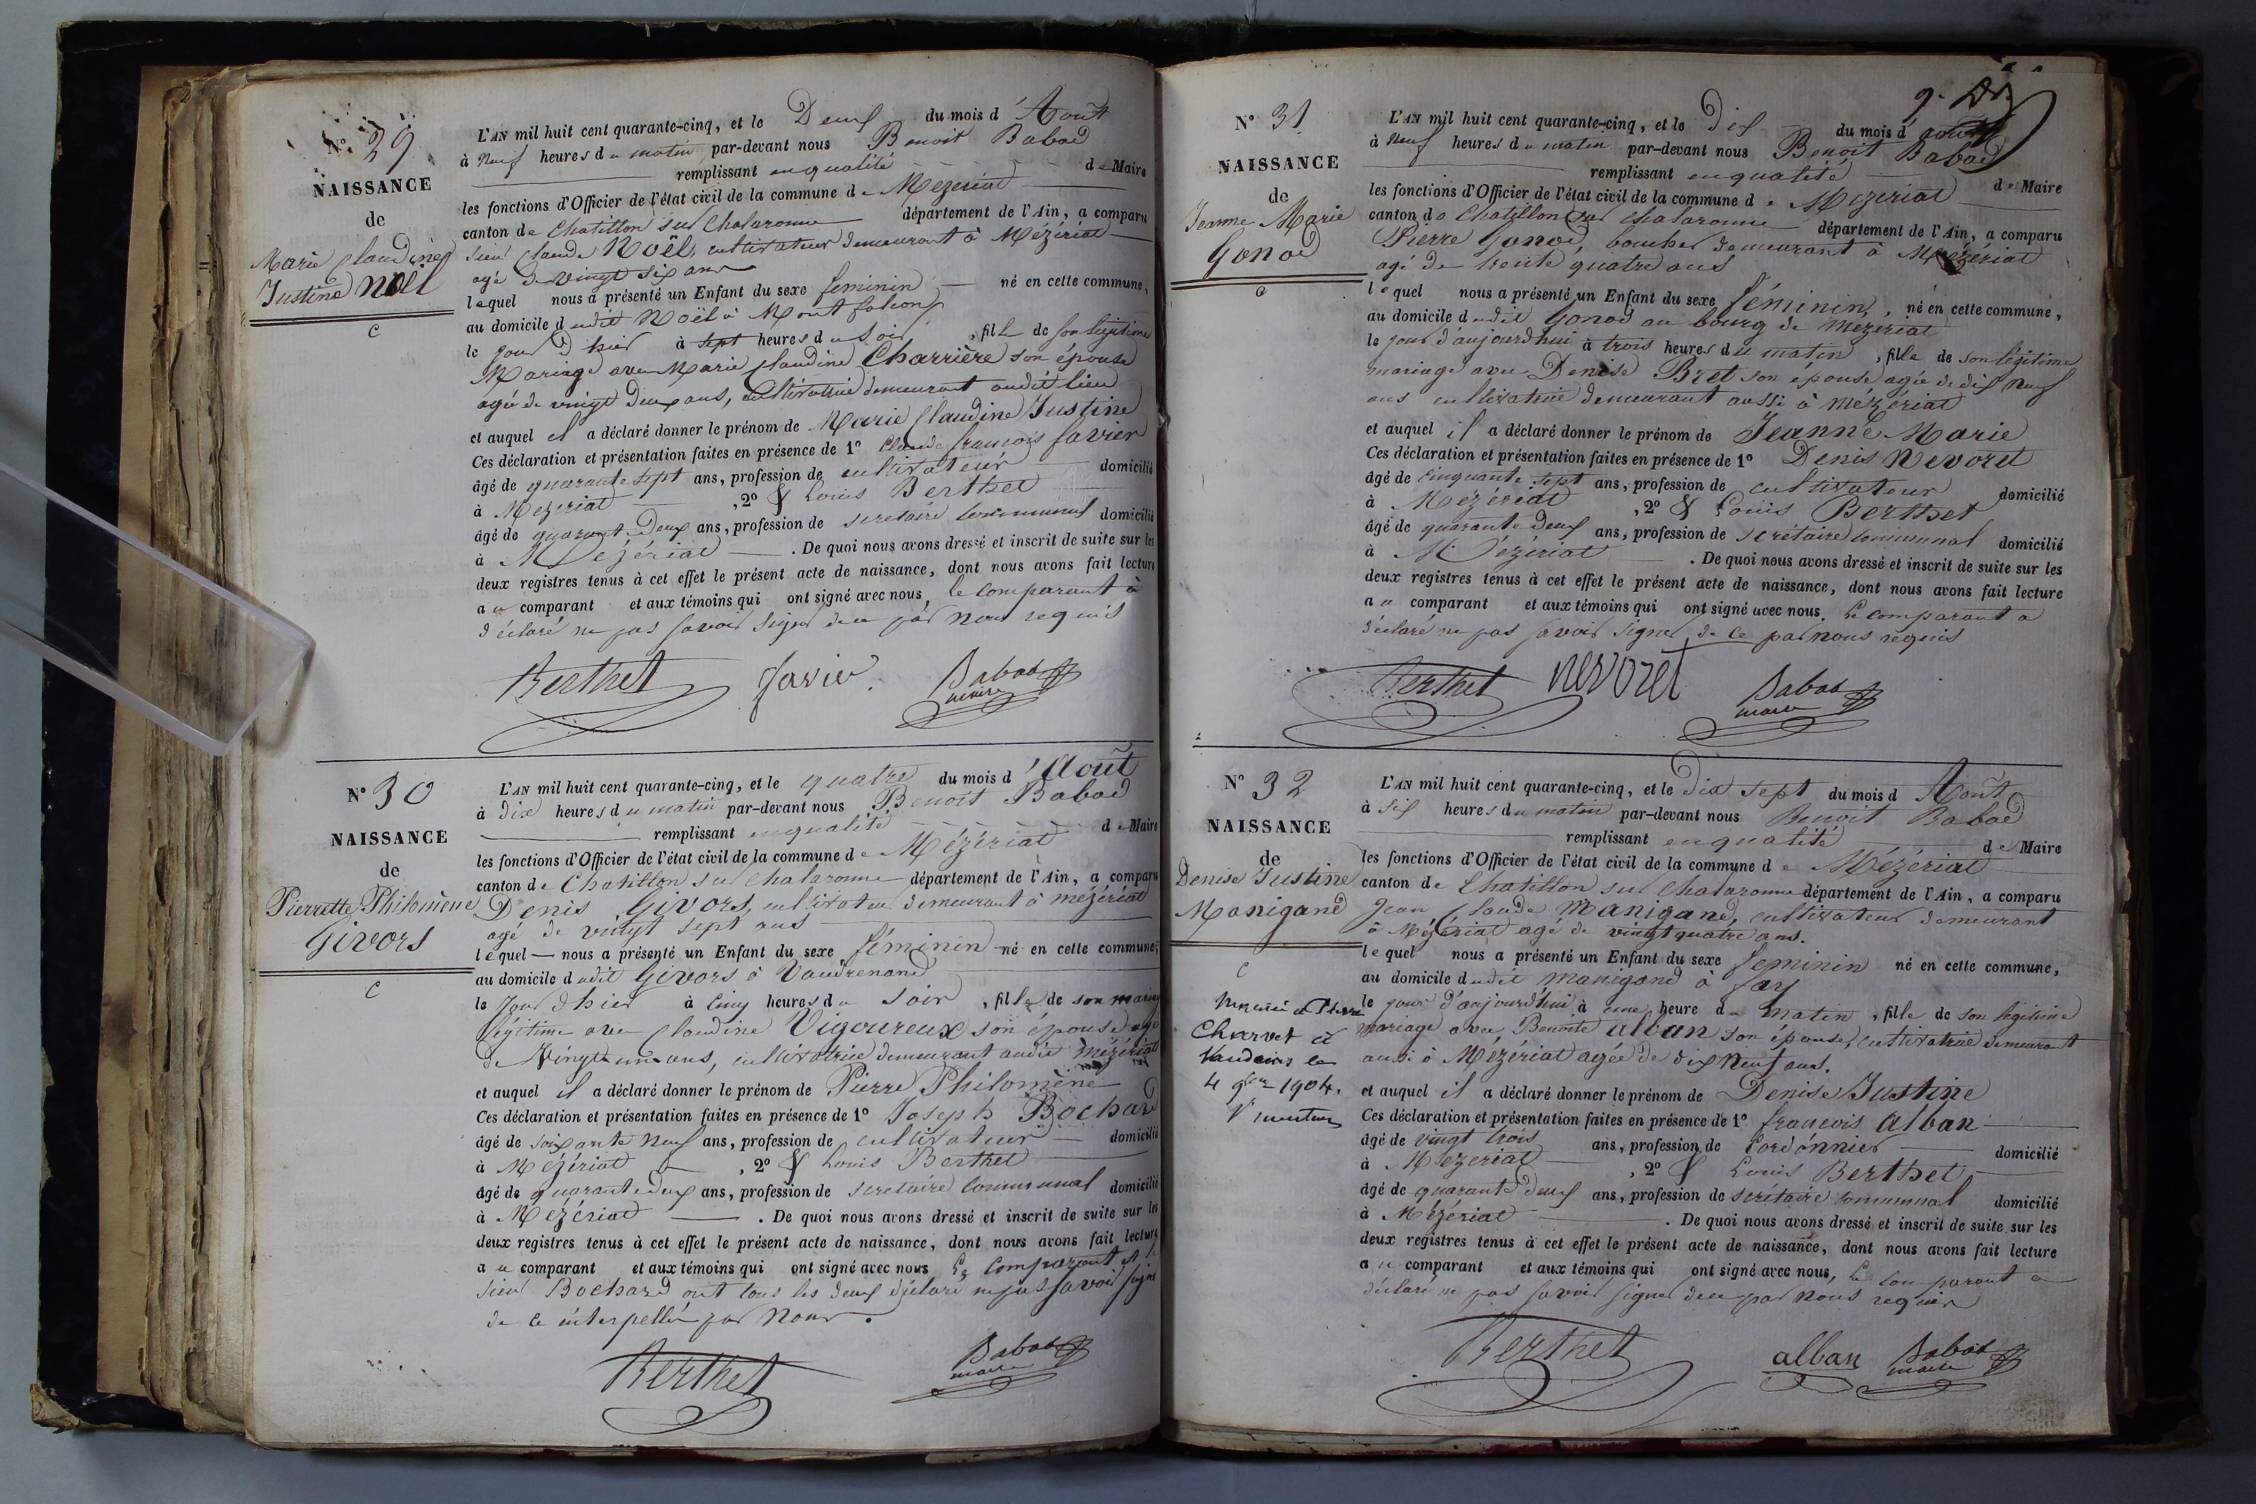 N° 29
NAISSANCE
de
Marie Claudine
Justine Noël
C
L'AN mil huit cent quarante-cinq, et le Deux du mois d'Août
à Neuf heures du matin par-devant nous Benoit Babad
remplissant en qualité de Maire
les fonctions d'Officier de l'état civil de la commune de Mézériat
canton de Chatillon sur Chalaronne département de l'Ain, a comparu
sieur Claude Noël, cultivateur demeurant à Mézériat
agé de vingt six ans
lequel nous a présenté un Enfant du sexe féminin né en cette commune,
au domicile dudit Noël à Montfalcon
le jour d'hier à sept heures du soir, fille de son légitime
Mariage avec Marie Claudine Charrière son épouse
agée de vingt deux ans, cultivatrice demeurant audit lieu
et auquel il a déclaré donner le prénom de Marie Claudine Justine
Ces déclaration et présentation faites en présence de 1° Claude françois favier
âgé de quarante sept ans, profession de cultivateur domicilié
à Mézériat, 2° & Louis Berthet
âgé de quarante Deux ans, profession de secretaire communal domicilié
à Mézériat. De quoi nous avons dressé et inscrit de suite sur les
deux registres tenus à cet effet le présent acte de naissance, dont nous avons fait lecture
au comparant et aux témoins qui ont signé avec nous, le comparant à
déclaré ne pas savoir signer de ce par nous requis
Berthet favier Babad
maire
N° 30
NAISSANCE
de
Pierrette Philomène
Givors
C
L'AN mil huit cent quarante-cinq, et le quatre du mois d'Août
à dix heures du matin par-devant nous Benoit Babad
remplissant en qualité de Maire
les fonctions d'Officier de l'état civil de la commune de Mézériat
canton de Chatillon sur Chalaronne département de l'Ain, a comparu
Denis Givors, cultivateur demeurant à mézériat
agé de vingt sept ans
lequel nous a présenté un Enfant du sexe féminin né en cette commune,
au domicile dudit Givors à Vaudrenand
le jour d'hier à cinq heures du soir, fille de son mariage
légitime avec Claudine Vigoureux son épouse agé
de Vingt un ans, cultivatrice demeurant audit mézériat
et auquel il a déclaré donner le prénom de Pierre Philomène
Ces déclaration et présentation faites en présence de 1° Joseph Bochard
âgé de soixante neuf ans, profession de cultivateur domicilié
à Mézériat, 2° & Louis Berthet
âgé de quarante deux ans, profession de secretaire communal domicilié
à Mézériat. De quoi nous avons dressé et inscrit de suite sur les
deux registres tenus à cet effet le présent acte de naissance, dont nous avons fait lecture
au comparant et aux témoins qui ont signé avec nous Le comparant et le
sieur Bochard ont tous les deux déclaré ne pas savoir signer
de ce interpellé par Nous.
Berthet Babad
maire
N° 31
NAISSANCE
de
Jeanne Marie
Gonod
L'AN mil huit cent quarante-cinq, et le Dix du mois d'août
à Neuf heures du matin par-devant nous Benoit Babad
remplissant en qualité de Maire
les fonctions d'Officier de l'état civil de la commune de Mézériat
canton de Chatillon sur Chalaronne département de l'Ain, a comparu
Pierre Gonod, boucher demeurant à Mézériat
agé de trente quatre ans
lequel nous a présenté un Enfant du sexe féminin, né en cette commune,
au domicile dudit Gonod au bourg de mézériat
le jour d'aujourd'hui à trois heures du matin, fille de son légitime
mariage avec Denise Bret son épouse agée de dix neuf
ans cultivatrice demeurant aussi à mézériat
et auquel il a déclaré donner le prénom de Jeanne Marie
Ces déclaration et présentation faites en présence de 1° Denis Nevoret
âgé de cinquante sept ans, profession de cultivateur domicilié
à Mézériat, 2° & Louis Berthet
âgé de quarante deux ans, profession de secrétaire communal domicilié
à Mézériat. De quoi nous avons dressé et inscrit de suite sur les
deux registres tenus à cet effet le présent acte de naissance, dont nous avons fait lecture
au comparant et aux témoins qui ont signé avec nous. Le comparant a
déclaré ne pas savoir signer de ce par nous requis
Berthet nevoret Babad
maire
N° 32
NAISSANCE
de
Denise Justine
Manigand
C
Mariée à Pierre
Charvet à
Vandeins le
4 9bre 1904.
L'AN mil huit cent quarante-cinq, et le dix sept du mois d Août
à six heures du matin par-devant nous Benoit Babad
remplissant en qualité de Maire
les fonctions d'Officier de l'état civil de la commune de Mézériat
canton de Chatillon sur Chalaronne département de l'Ain, a comparu
Jean Claude Manigand, cultivateur demeurant
à Mézériat agé de vingt quatre ans.
lequel nous a présenté un Enfant du sexe feminin né en cette commune,
au domicile dudit manigand à fay
le jour d'aujourd'hui à une heure du matin, fille de son légitime
mariage avec Benoite alban son épouse, cultivatrice demeurant
aussi à Mézériat agée de dix neuf ans.
et auquel il a déclaré donner le prénom de Denise Justine
Ces déclaration et présentation faites en présence de 1° françois alban
âgé de vingt trois ans, profession de Cordonnier domicilié
à Mézériat, 2° & Louis Berthet
âgé de quarante deux ans, profession de secrétaire communal domicilié
à Mézériat. De quoi nous avons dressé et inscrit de suite sur les
deux registres tenus à cet effet le présent acte de naissance, dont nous avons fait lecture
au comparant et aux témoins qui ont signé avec nous, le comparant a
déclaré ne pas savoir signer de ce par nous requis
Berthet alban Babad
maire